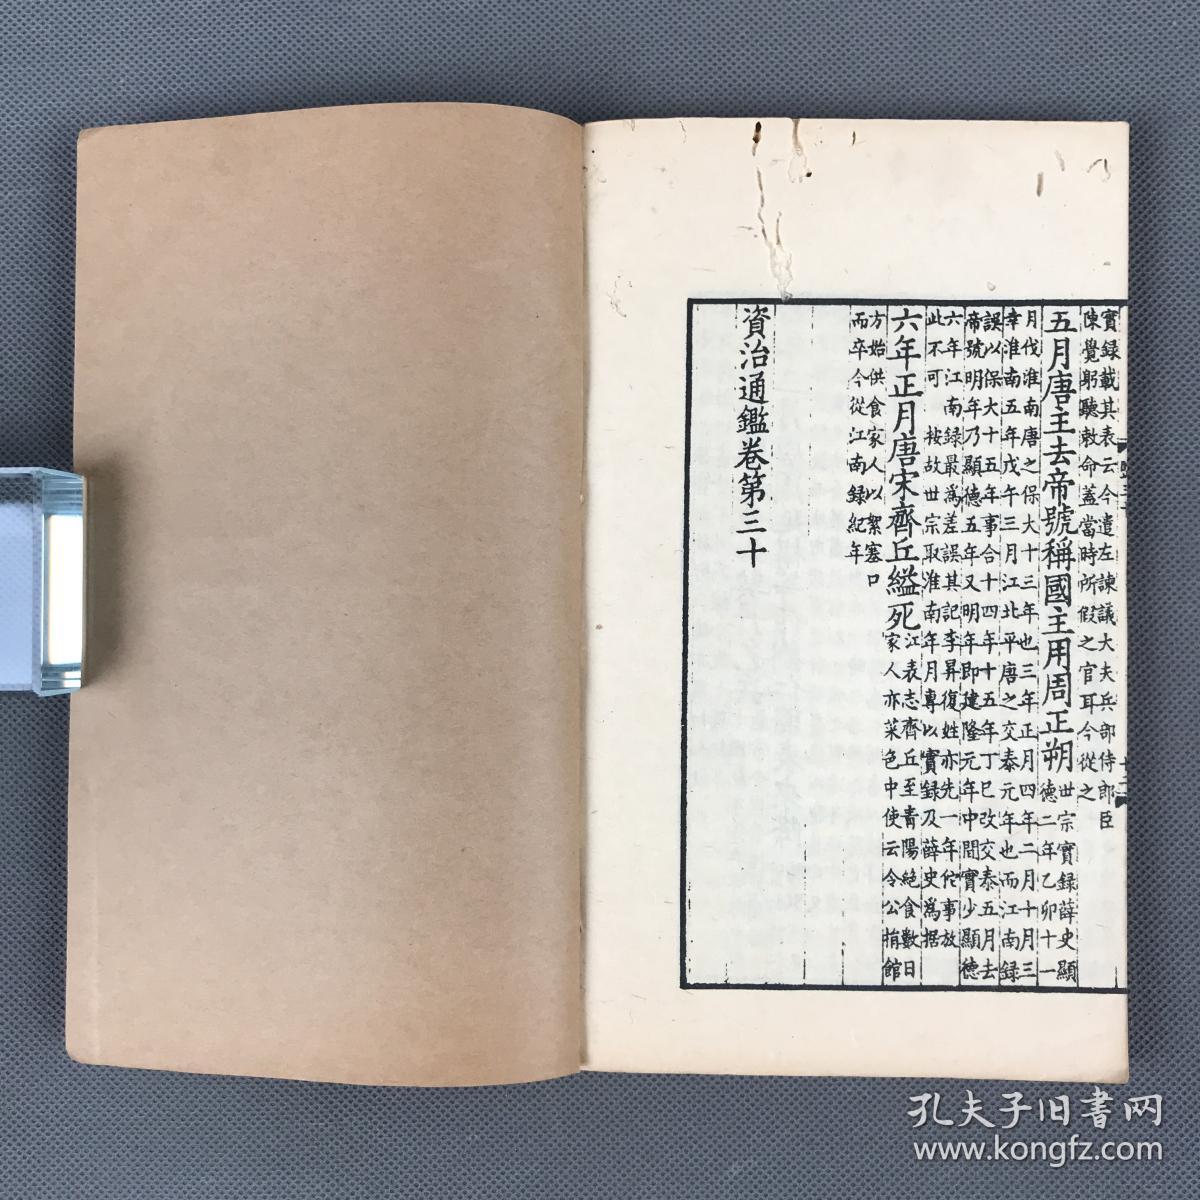 實錄載其表云今遣左諫議大夫兵部侍郎臣
陳覺躬聽敕命蓋當時所假之官耳今從之
五月唐主去帝號稱國主用周正朔
世宗實錄薛史顯
德二年乙卯十一
月伐淮南唐之保大十三年也三年正月四年二月十月三
幸淮南五年戊午三月江北平唐之交泰元年也而江南錄
誤以保大十五年事合十四年十五年丁巳改交泰五月去
帝號明年乃顯德五年又明年即建隆元年中間實少顯德
六年江南錄最爲差誤其記李昪復姓亦先一年佗事放
此不可按故世宗取淮南年月專以實錄及薛史爲据
六年正月唐宋齊丘縊死
江表志齊丘至青陽絕食數日
家人亦菜色中使云令公捐館
方始供食家人以絮塞口
而卒今從江南錄紀年
資治通鑑卷第三十
孔夫子旧書网
www.kongfz.com